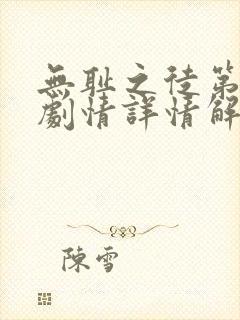 無恥之徒第
劇情詳情解
陳雪